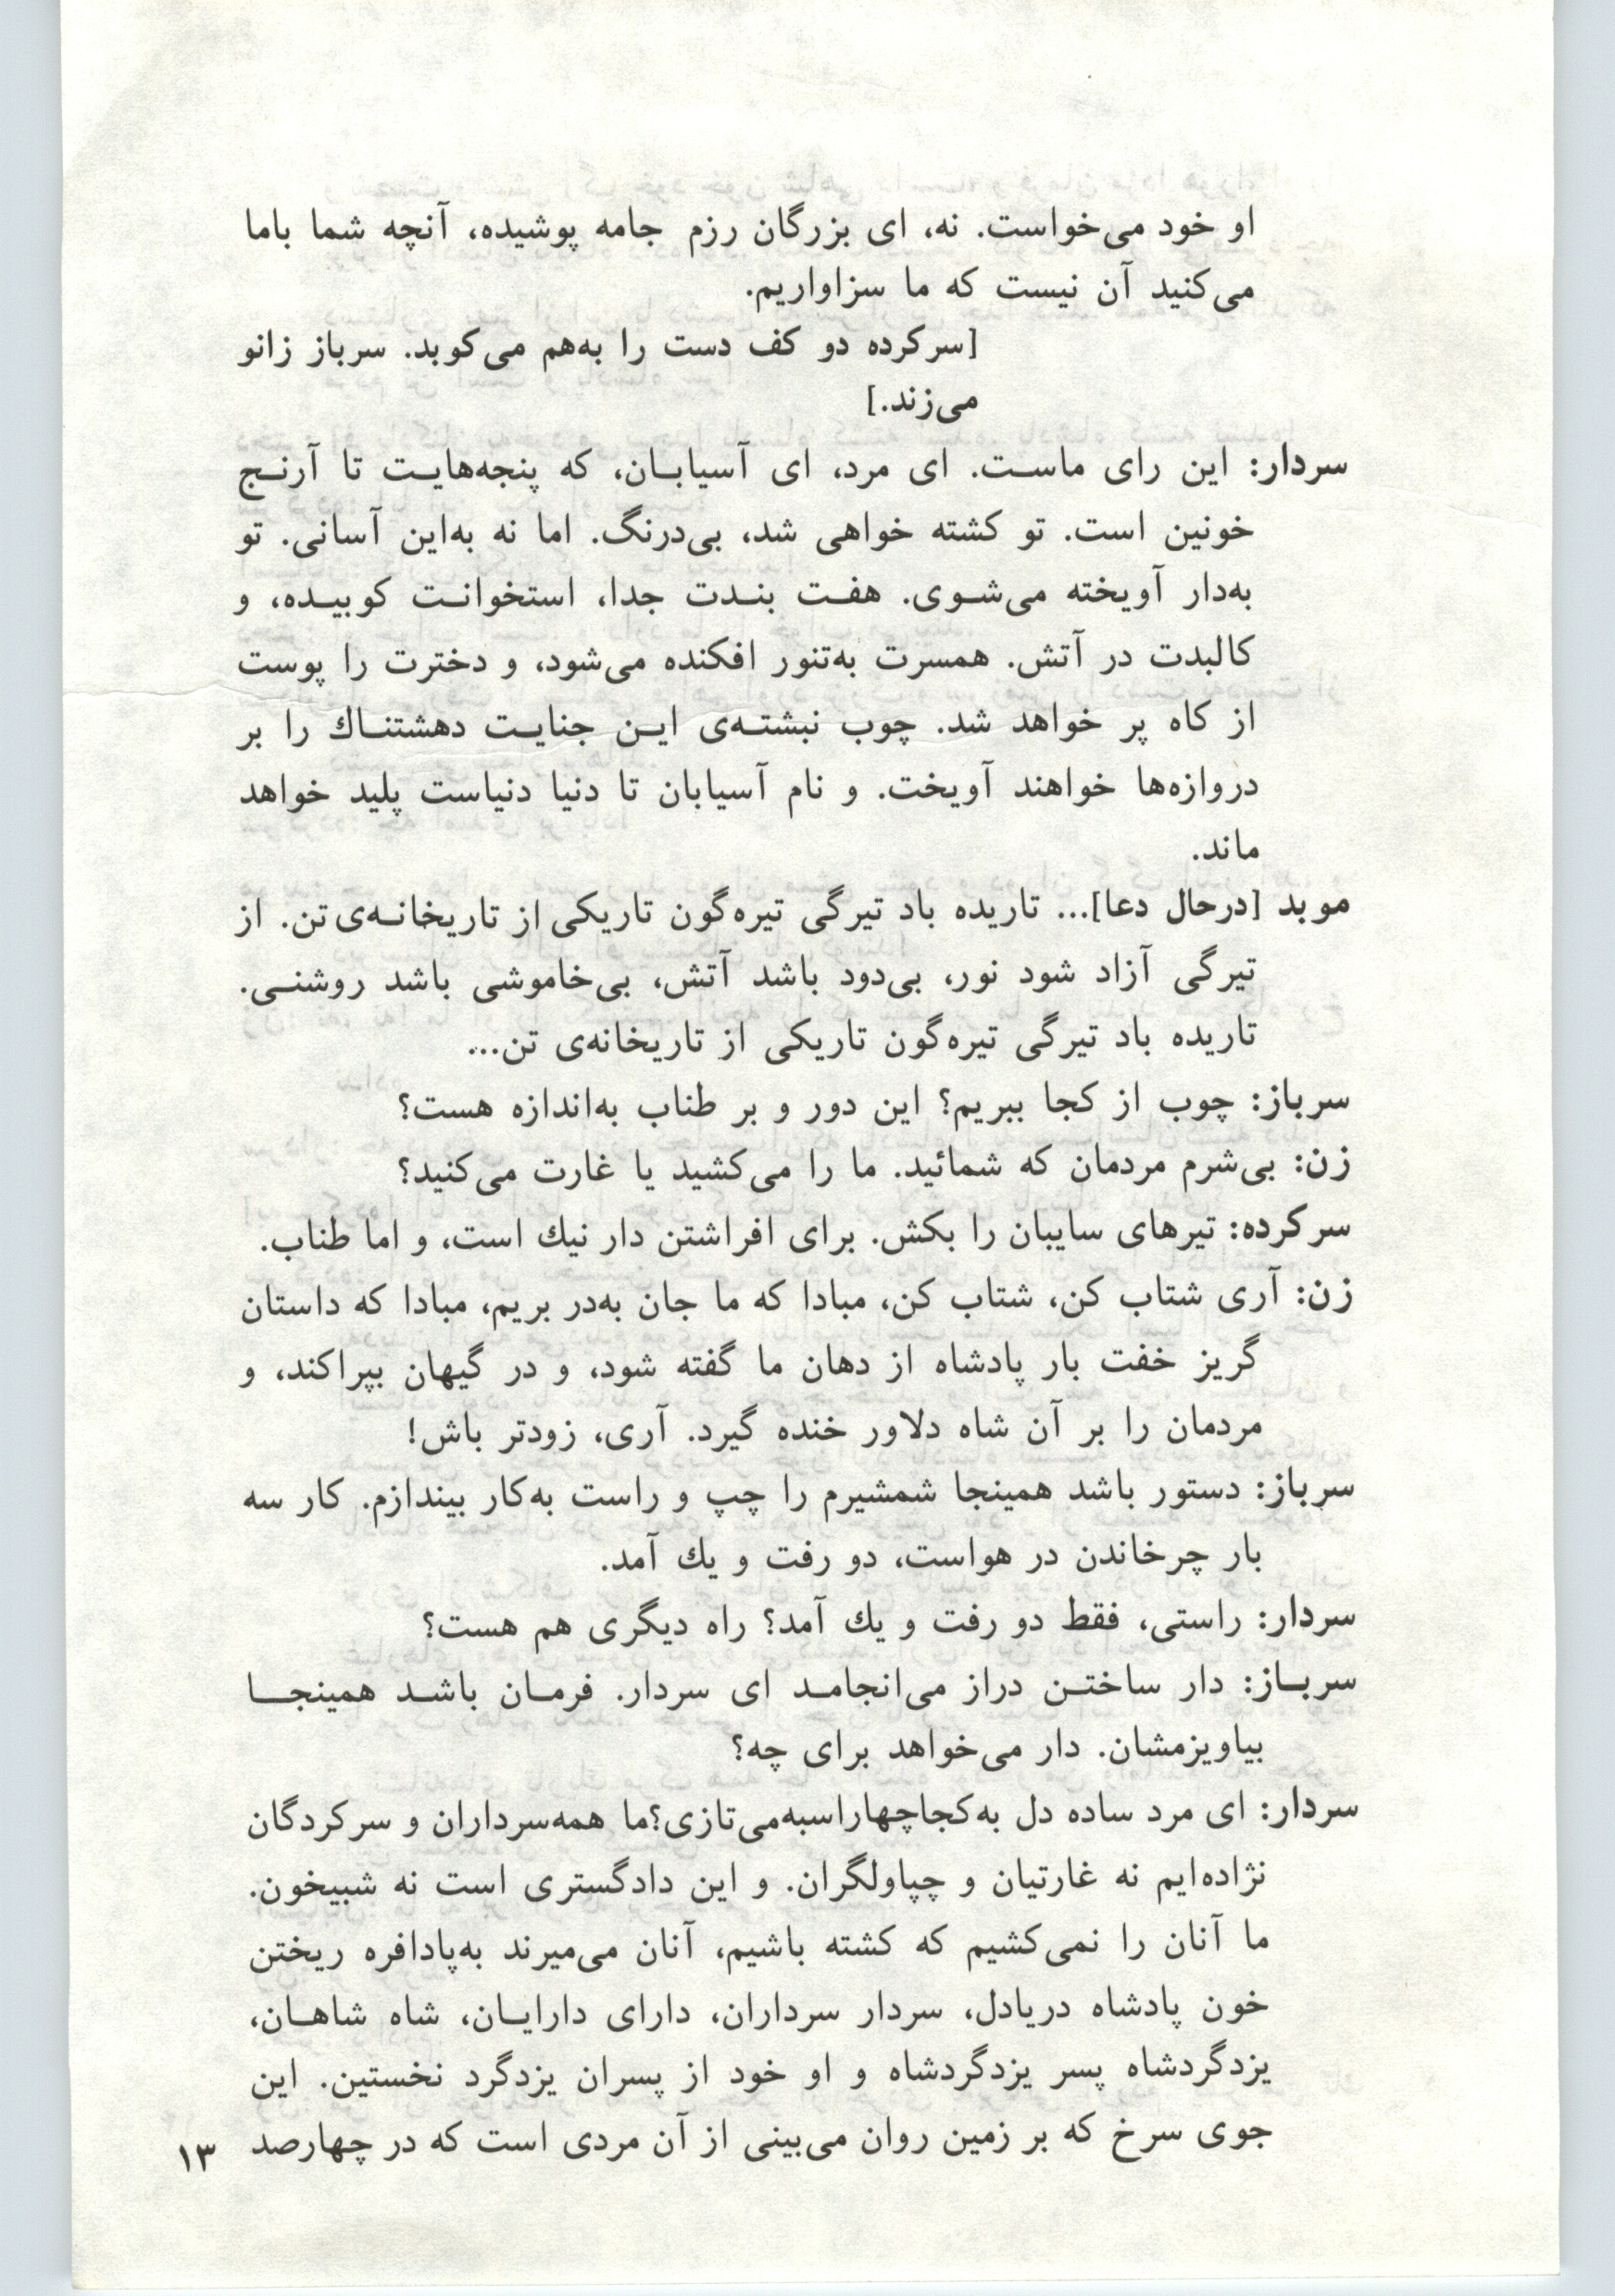 او خود می‌خواست. نه، ای بزرگان رزم جامه پوشیده، آنچه شما باما
می‌کنید آن نیست که ما سزاواریم.
[سرکرده دو کف دست را به‌هم می‌کوبد. سرباز زانو
می‌زند.]
سردار: این رای ماست. ای مرد، ای آسیابان، که پنجه‌هایت تا آرنج
خونین است. تو کشته خواهی شد، بی‌درنگ. اما نه به‌این آسانی. تو
به‌دار آویخته می‌شوی. هفت بندت جدا، استخوانت کوبیده، و
کالبدت در آتش. همسرت به‌تنور افکنده می‌شود، و دخترت را پوست
از کاه پر خواهد شد. چوب نبشته‌ی این جنایت دهشتناك را بر
دروازه‌ها خواهند آویخت. و نام آسیابان تا دنیا دنیاست پلید خواهد
ماند.
موبد [درحال دعا]... تاریده باد تیرگی تیره‌گون تاریکی از تاریخانه‌ی تن. از
تیرگی آزاد شود نور، بی‌دود باشد آتش، بی‌خاموشی باشد روشنی.
تاریده باد تیرگی تیره‌گون تاریکی از تاریخانه‌ی تن...
سرباز: چوب از کجا ببریم؟ این دور و بر طناب به‌اندازه هست؟
زن: بی‌شرم مردمان که شمائید. ما را می‌کشید یا غارت می‌کنید؟
سرکرده: تیرهای سایبان را بکش. برای افراشتن دار نیك است، و اما طناب.
زن: آری شتاب کن، شتاب کن، مبادا که ما جان به‌در بریم، مبادا که داستان
گریز خفت بار پادشاه از دهان ما گفته شود، و در گیهان بپراکند، و
مردمان را بر آن شاه دلاور خنده گیرد. آری، زودتر باش!
سرباز: دستور باشد همینجا شمشیرم را چپ و راست به‌کار بیندازم. کار سه
بار چرخاندن در هواست، دو رفت و یك آمد.
سردار: راستی، فقط دو رفت و یك آمد؟ راه دیگری هم هست؟
سرباز: دار ساختن دراز می‌انجامد ای سردار. فرمان باشد همینجا
بیاویزمشان. دار می‌خواهد برای چه؟
سردار: ای مرد ساده دل به‌کجاچهاراسبه‌می‌تازی؟ما همه‌سرداران و سرکردگان
نژاده‌ایم نه غارتیان و چپاولگران. و این دادگستری است نه شبیخون.
ما آنان را نمی‌کشیم که کشته باشیم، آنان می‌میرند به‌پادافره ریختن
خون پادشاه دریادل، سردار سرداران، دارای دارایان، شاه شاهان،
یزدگردشاه پسر یزدگردشاه و او خود از پسران یزدگرد نخستین. این
جوی سرخ که بر زمین روان می‌بینی از آن مردی است که در چهارصد
۱۳